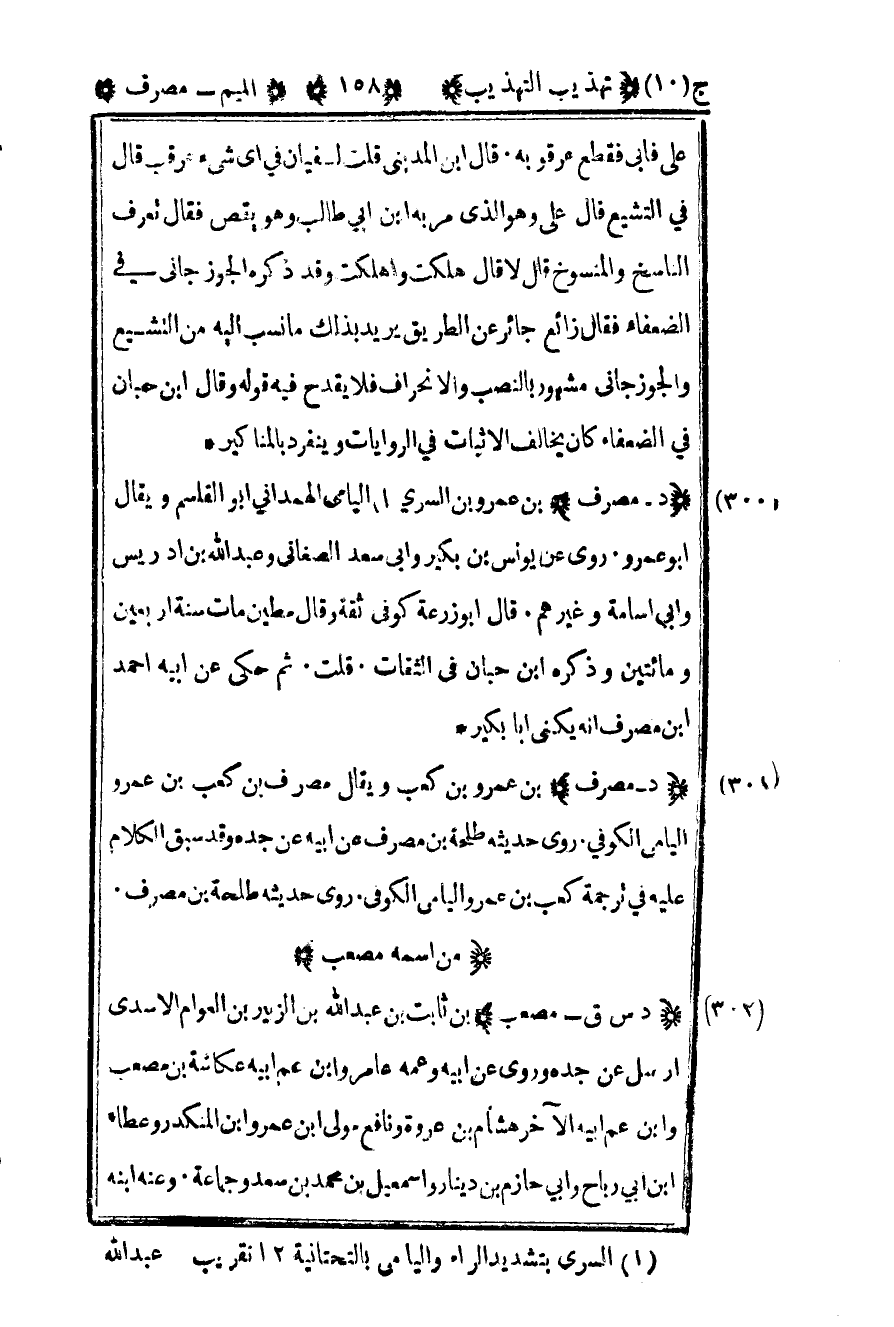 ج(١٠) ﴿ تهذيب التهذيب ﴾ ﴿١٥٨﴾ ﴿ الميم ـ مصرف ﴾
على فابى فقطع عرقوبه ٠ قال ابن المديني قلت لسفيان في اى شىء عرقب قال
في التشيع قال على وهو الذى مر به ابن ابي طالب وهو يقص فقال تعرف
الناسخ والمنسوخ قال لا قال هلكت واهلكت وقد ذكره الجوزجانى في
الضعفاء فقال زائع جائر عن الطريق يريد بذلك ما نسب اليه من التشيع
والجوزجانى مشهور بالنصب والانحراف فلا يقدح فيه قوله وقال ابن حبان
في الضعفاء كان يخالف الاثبات في الروايات وينفرد بالمناكير *
(٣٠٠) ﴿ د ـ مصرف ﴾ بن عمرو بن السري ١) اليامى الهمداني ابو القاسم ويقال
ابو عمرو ٠ روى عن يونس بن بكير وابى سعد الصغانى وعبدالله بن ادريس
وابي اسامة وغيرهم ٠ قال ابوزرعة كوفى ثقة وقال مطين مات سنة اربعين
ومائتين وذكره ابن حبان فى الثقات ٠ قلت ٠ ثم حكى عن ابيه احمد
ابن مصرف انه يكنى ابا بكير *
(٣٠١) ﴿ د ـ مصرف ﴾ بن عمرو بن كعب ويقال مصرف بن كعب بن عمرو
اليامى الكوفي ٠ روى حديثه طلحة بن مصرف عن ابيه عن جده وقد سبق الكلام
عليه في ترجمة كعب بن عمرو اليامى الكوفى ٠ روى حديثه طلحة بن مصرف ٠
﴿ من اسمه مصعب ﴾
(٣٠٢) ﴿ د س ق ـ مصعب ﴾ بن ثابت بن عبدالله بن الزبير بن العوام الاسدى
ارسل عن جده وروى عن ابيه وعمه عامر وابن عم ابيه عكاشة بن مصعب
وابن عم ابيه الآخر هشام بن عروة ونافع مولى ابن عمر وابن المنكدر وعطاء
ابن ابي رباح وابي حازم بن دينار واسمعيل بن محمد بن سعد وجماعة ٠ وعنه ابنه
(١) السرى بتشديد الراء واليامى بالتحتانية ١٢ تقريب عبدالله